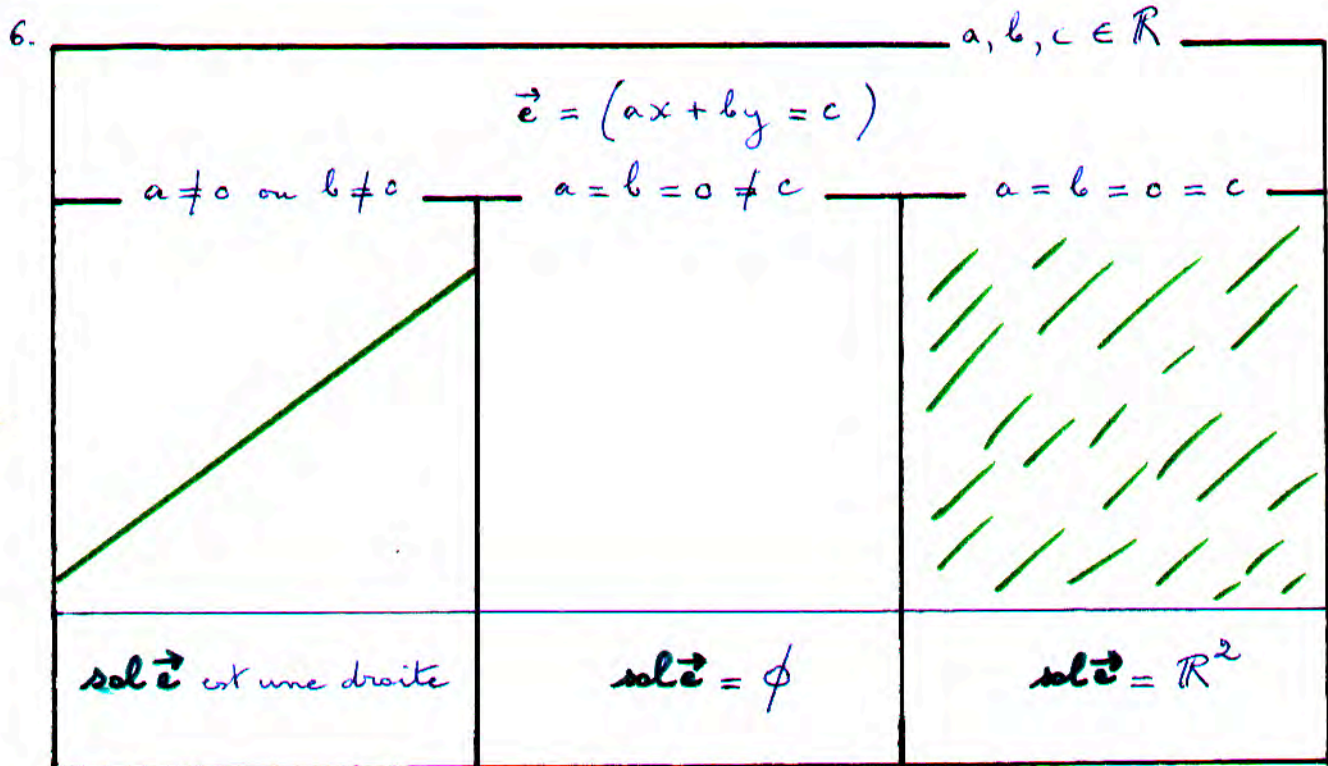 6. a, b, c ∈ ℝ
e⃗ = (ax + by = c)
a ≠ 0 ou b ≠ 0 a = b = 0 ≠ c a = b = 0 = c
sol e⃗ est une droite sol e⃗ = ϕ sol e⃗ = ℝ²